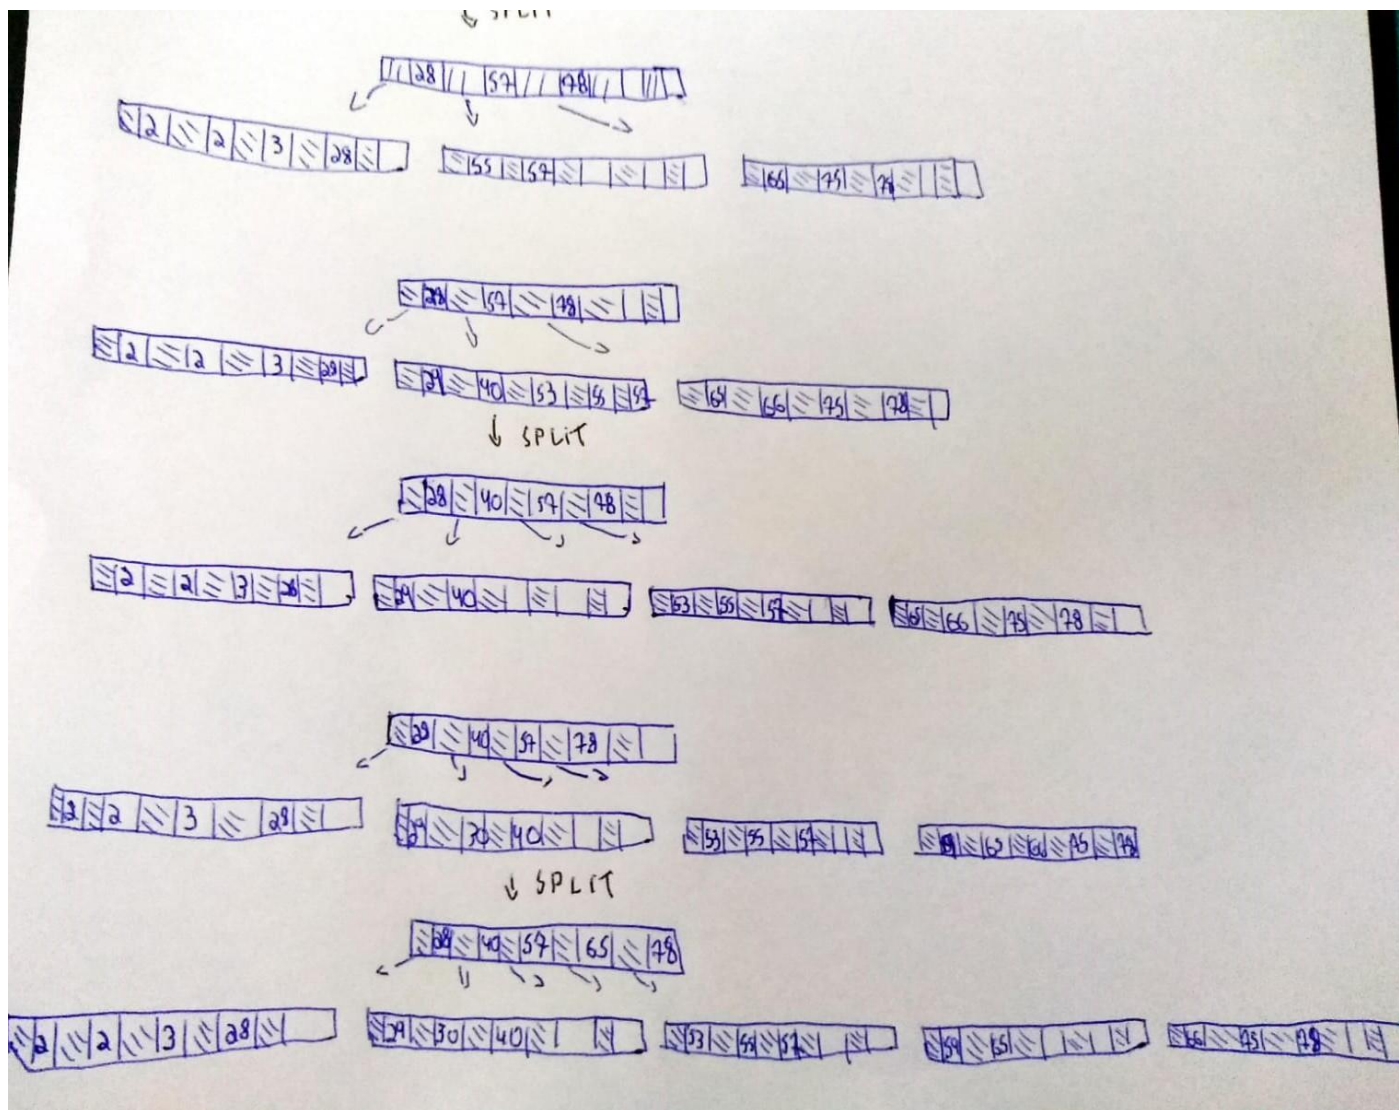 SPLIT
28 57 78
2 2 3 28 55 57 66 75 78
28 57 78
2 2 3 28 29 40 53 55 57 65 66 75 78
SPLIT
28 40 57 78
2 2 3 28 29 40 53 55 57 65 66 75 78
28 40 57 78
2 2 3 28 29 30 40 53 55 57 65 66 75 78
SPLIT
28 40 57 65 78
2 2 3 28 29 30 40 53 55 57 59 65 66 75 78